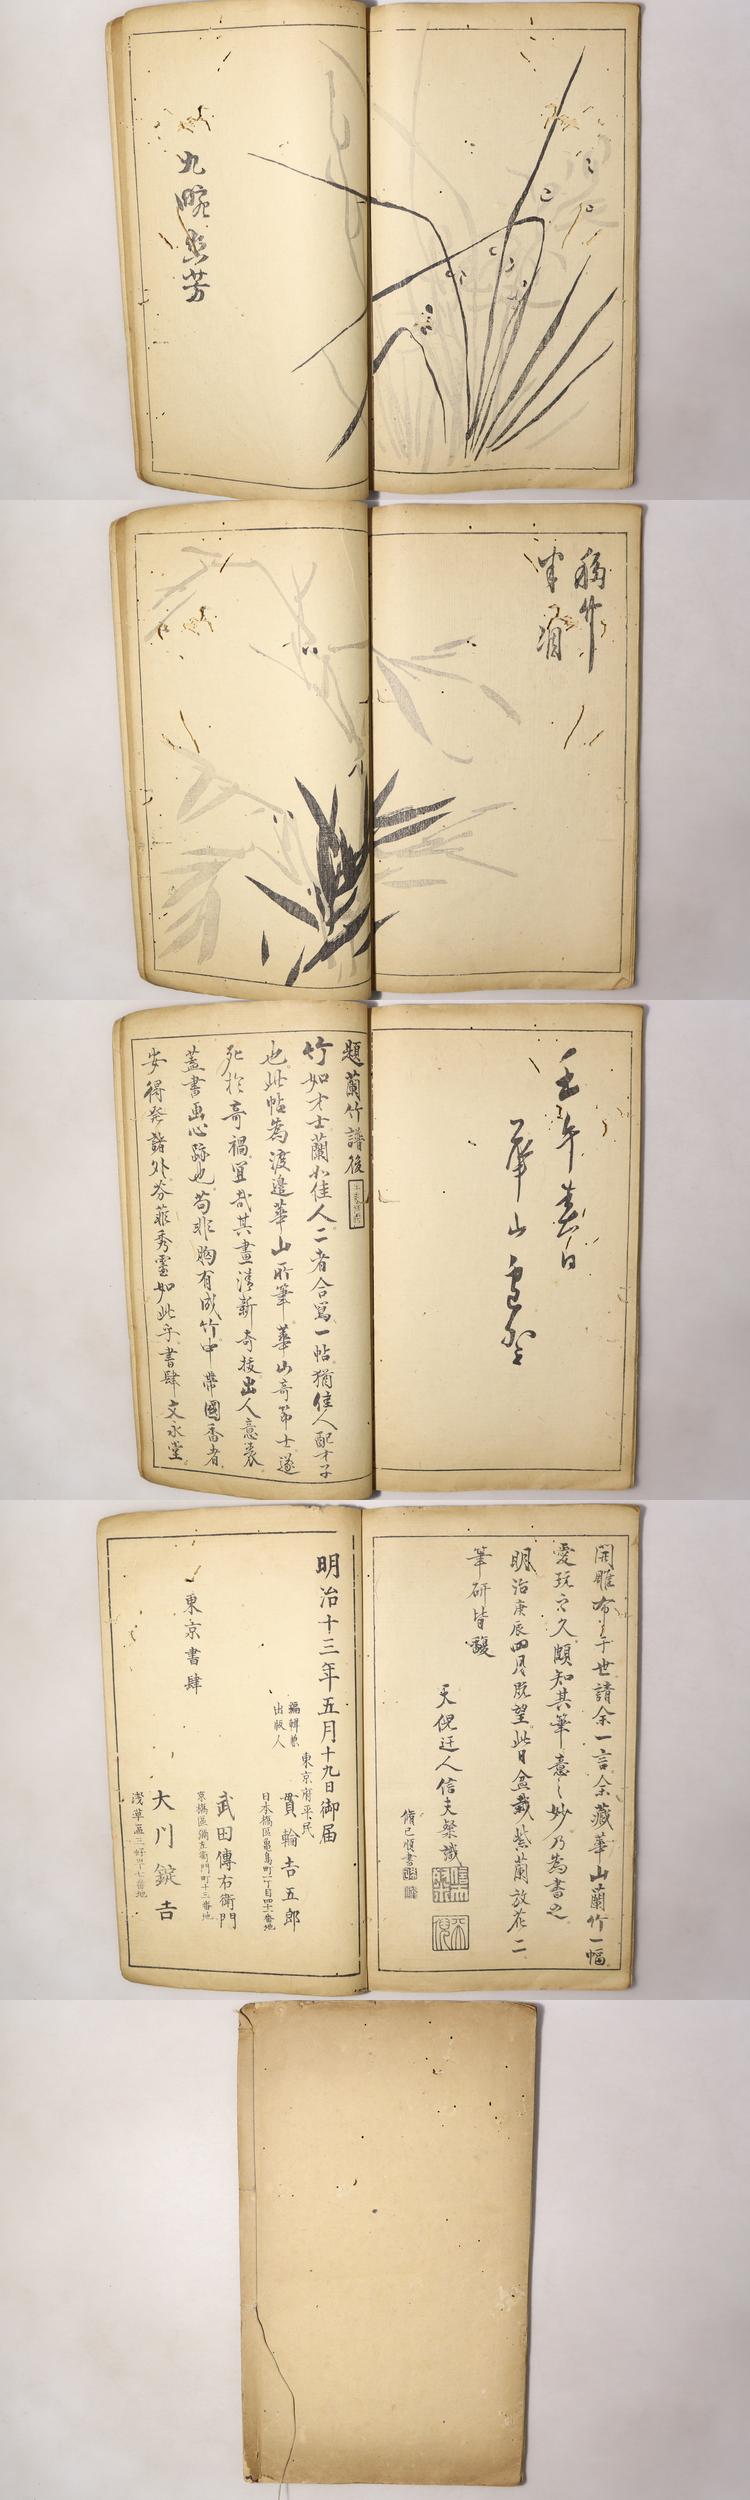 九畹
芳
竹
題蘭竹譜後
竹如才士蘭如佳人二者合寫一帖猶佳人配才子
也此帖為渡邉華山所筆華山奇節士遂
死於奇禍宜哉其畫清新奇拔出人意表
蓋書画心跡也苟非胸有成竹中帶國香者
安得発諸外芬菲秀靈如此乎書肆文永堂
年春日
華山
開雕布于世請余一言余藏華山蘭竹一幅
愛玩之久頗知其筆意之妙乃為書之
明治庚辰四月既望此日盆栽紫蘭放花二
筆研皆馥
天倪迂人信夫粲識
明治十三年五月十九日御届
東京府平民
編輯兼
出版人
貫輪吉五郎
日本橋區亀島町一丁目四十二番地
東京書肆
武田傳右衛門
京橋區彌左衛門町十三番地
大川錠吉
淺草區三好町七番地